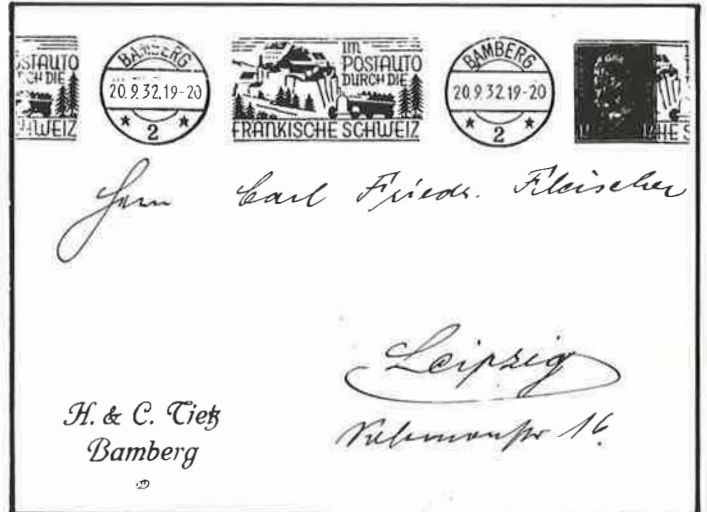 POSTAUTO
DURCH DIE
SCHWEIZ
BAMBERG
20.9.32.19-20
2
IM
POSTAUTO
DURCH DIE
FRÄNKISCHE SCHWEIZ
BAMBERG
20.9.32.19-20
2
HE S
Herrn Carl Friedr. Fleischer
Leipzig
Salomonstr 16.
H. & C. Tietz
Bamberg